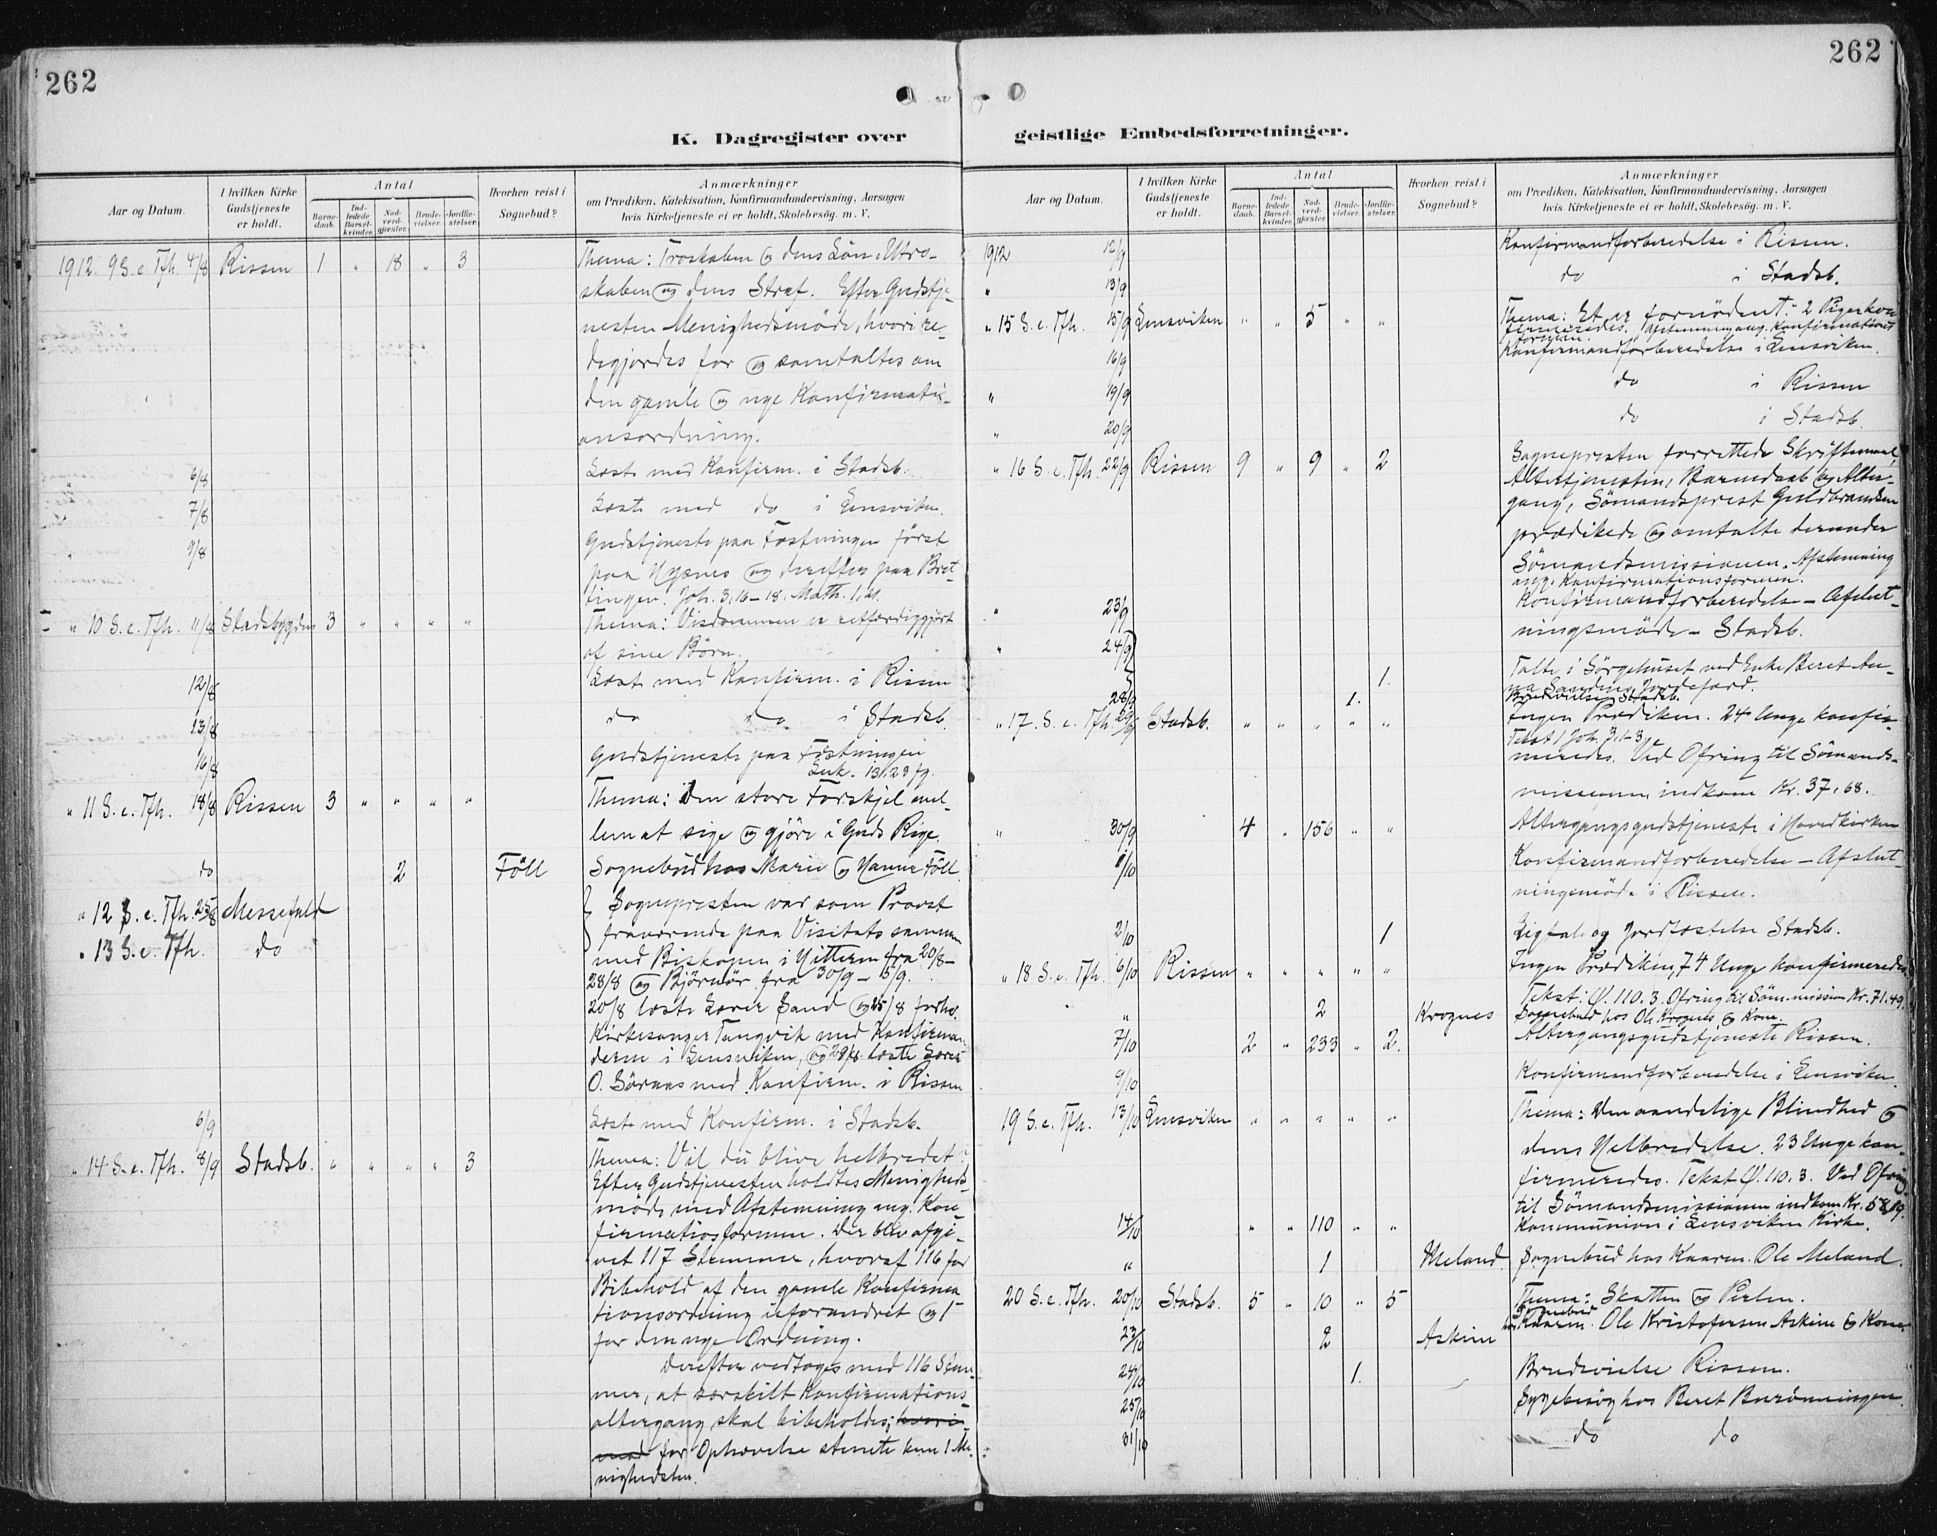 262
K. Dagregister over
Aar og Datum.
I hvilken Kirke Gudstjeneste er holdt.
Antal
Barne-daab.
Ind-ledede Barsel-kvinder.
Nad-verd-gjæster.
Brude-vielser.
Jordfæ-stelser.
Hvorhen reist i Sognebud?
Anmærkninger
om Prædiken, Katekisation, Konfirmandundervisning, Aarsagen
hvis Kirketjeneste ei er holdt, Skolebesøg. m. V.
1912. 9 S. e. Tfh. 4/8 Rissen 1 " 18 " 3 Thema: Troskaben og dens Løn, Utro-
skaben og dens Straf. Efter Gudstje-
nesten Menighedsmøde, hvori re-
degjordes for og samtaltes om
den gamle og nye Konfirmati-
onsordning.
" 6/8 Læst med Konfirm. i Stadsb.
7/8 Læst med do i Lensviken.
" 9/8 Gudstjeneste paa Fæstningen først
paa Hysnes og derefter paa Bret-
tingen. Joh. 3, 16-18. Matth.
" 10 S. e. Tfh. 11/8 Stadsbygden 3 " " " " Thema: Visdommen er retfærdiggjort
af sine Børn.
12/8 Læst med Konfirm. i Rissen
13/8 do do i Stadsb.
16/8 Gudstjeneste paa Fæstningen
Luk. 13, 23 fg.
" 11 S. e. Tfh. 18/8 Rissen 3 " " " " Thema: Den store Forskjel mel-
lem at sige og gjøre i Guds Rige.
do 2 Föll Sognebud hos Marie og Hanna Föll.
" 12 S. e. Tfh. 25/8 Messefald Sognepresten var som Provst
" 13 S. e. Tfh. do fraværende paa Visitats sammen
med Biskopen i Hitteren fra 20/8-
28/8 og Bjørnør fra 30/9 - 5/9.
20/8 læste Lærer Sand og 25/8 forhv.
Kirkesanger Tangvik med Konfirman-
derne i Lensviken, og 28/8 læste Lærer
O. Sørnæs med Konfirm. i Rissen
6/9 Læst med Konfirm. i Stadsb.
" 14 S. e. Tfh. 8/9 Stadsb. " " " " 3 Thema: Vil du blive helbredet?
Efter Gudstjenesten holdtes Menigheds-
møde med Afstemning ang. Kon-
firmatiosformen. Der blev afgi-
vet 117 Stemmer, hvoraf 116 for
Bibehold af den gamle Konfirma
tionsordning uforandret og 1
for den nye Ordning.
Derefter vedtoges med 116 Stem-
mer, at særskilt Konfirmations-
altergang skal bibeholdes;
for Ophævelse stemte kun 1 Me-
nighedslem.
262
geistlige Embedsforretninger.
Aar og Datum.
I hvilken Kirke Gudstjeneste er holdt.
Antal
Barne-daab.
Ind-ledede Barsel-kvinder.
Nad-verd-gjæster.
Brude-vielser.
Jordfæ-stelser.
Hvorhen reist i Sognebud?
Anmærkninger
om Prædiken, Katekisation, Konfirmandundervisning, Aarsagen
hvis Kirketjeneste ei er holdt, Skolebesøg. m. V.
1912 12/9 Konfirmandforberedelse i Rissen.
" 13/9 do i Stadsb.
" 15 S. e. Tfh. 15/9 Lensviken " " 5 " " Thema: Et er fornødent. 2 Piger kon
firmeredes. Afstemning ang. Konfirmations
formen.
16/9 Konfirmandforberedelse i Lensviken.
" 19/9 do i Rissen
" 20/9 do i Stadsb.
" 16 S. e. Tfh. 22/9 Rissen 9 " 9 " 2 Sognepresten forrettede Skriftemaal,
Altertjenesten, Barnedaab og Alter-
gang, Sømandsprest Guldbrandsen
prædikede og omtalte derunder
Sømandsmissionen. Afstemning
ang. Konfirmationsformen.
" 23/9 Konfirmandforberedelse - Afslut-
ningsmøde - Stadsb.
" 24/9 1. Talte i Sørgehuset ved Enke Beret An-
na Jordefærd.
28/9 1. Brudevielse Stadsb.
" 17. S. e. Tfh. 29/9 Stadsb. " " " " " Ingen Prædiken. 24 Unge konfir-
Tekst 1 Joh. 3, 1-3.
meredes. Ved Ofring til Sømands-
missionen indkom Kr. 37,68.
" 30/9 4 " 156 " " Altergangsgudstjeneste i Hovedkirken
1/10 Konfirmandforberedelse - Afslut-
ningsmøde i Rissen.
2/10 1 Ligtale og Jordfæstelse Stadsb.
" 18 S. e. Tfh. 6/10 Rissen " " " " " Ingen Prædiken, 74 Unge konfirmeredes
Tekst: Ø. 110. 3. Ofring til Søm.mission Kr. 71.49.
" 2 Krognes Sognebud hos Ole Krognes og Kone.
7/10 2 " 233 " 2. Altergangsgudstjeneste Rissen.
9/10 Konfirmandforberedelse i Lensviken.
19 S. e. Tfh. 13/10 Lensviken " " " " " Thema: Den aandelige Blindhed og
dens Helbredelse. 23 Unge kon-
firmeredes. Tekst Ø. 110. 3. Ved Ofring
til Sømandsmissionen indkom Kr.
14/10 " " 110 " " Kommunion i Lensviken Kirke.
" 1 Meland. Sognebud hos Kaarm. Ole Meland.
20 S. e. Tfh. 20/10 Stadsb. 5 " 10 " 5 Thema: Skatten og Perlen.
Sognebud
23/10 2 Askim hos Kaarm. Ole Kristofersen Askim og Kone.
24/10 1. Brudevielse Rissen.
25/10 Sygebesøg hos Beret
31/10 do do